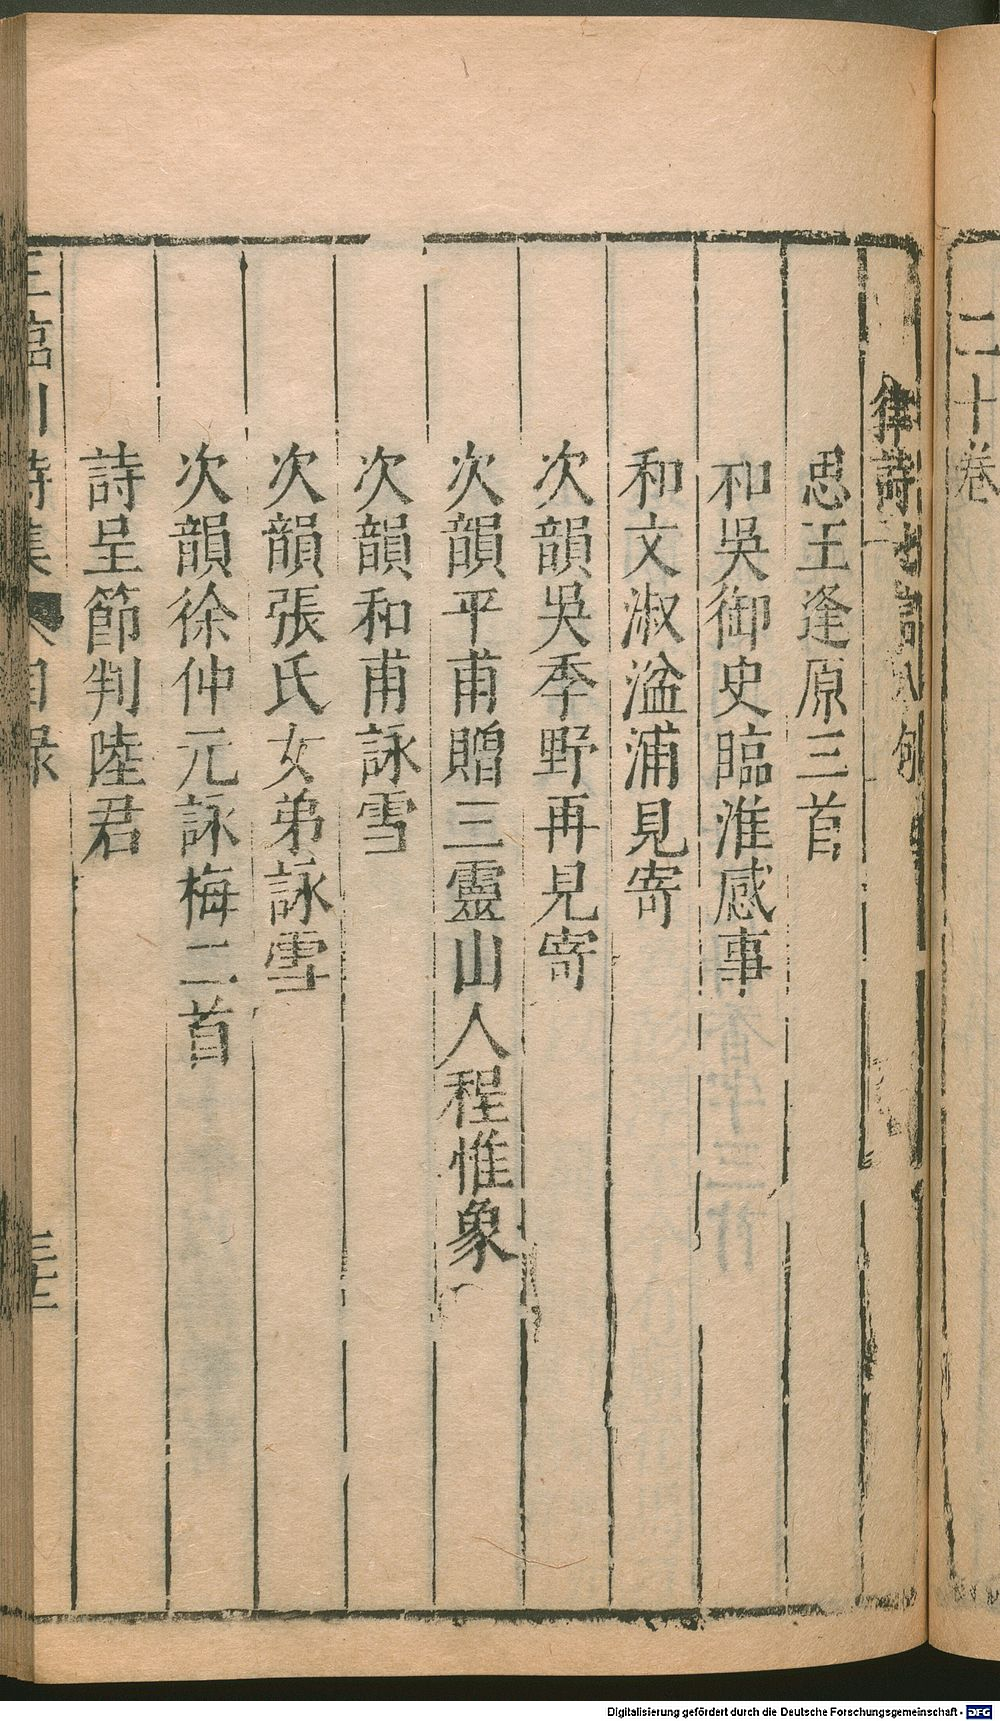 二十卷
律詩七言八句
思王逢原三首
和吳御史臨淮感事
和文淑湓浦見寄
次韻吳季野再見寄
次韻平甫贈三靈山人程惟象
次韻和甫詠雪
次韻張氏女弟詠雪
次韻徐仲元詠梅二首
詩呈節判陸君
王臨川詩集 目錄
Digitalisierung gefördert durch die Deutsche Forschungsgemeinschaft - DFG